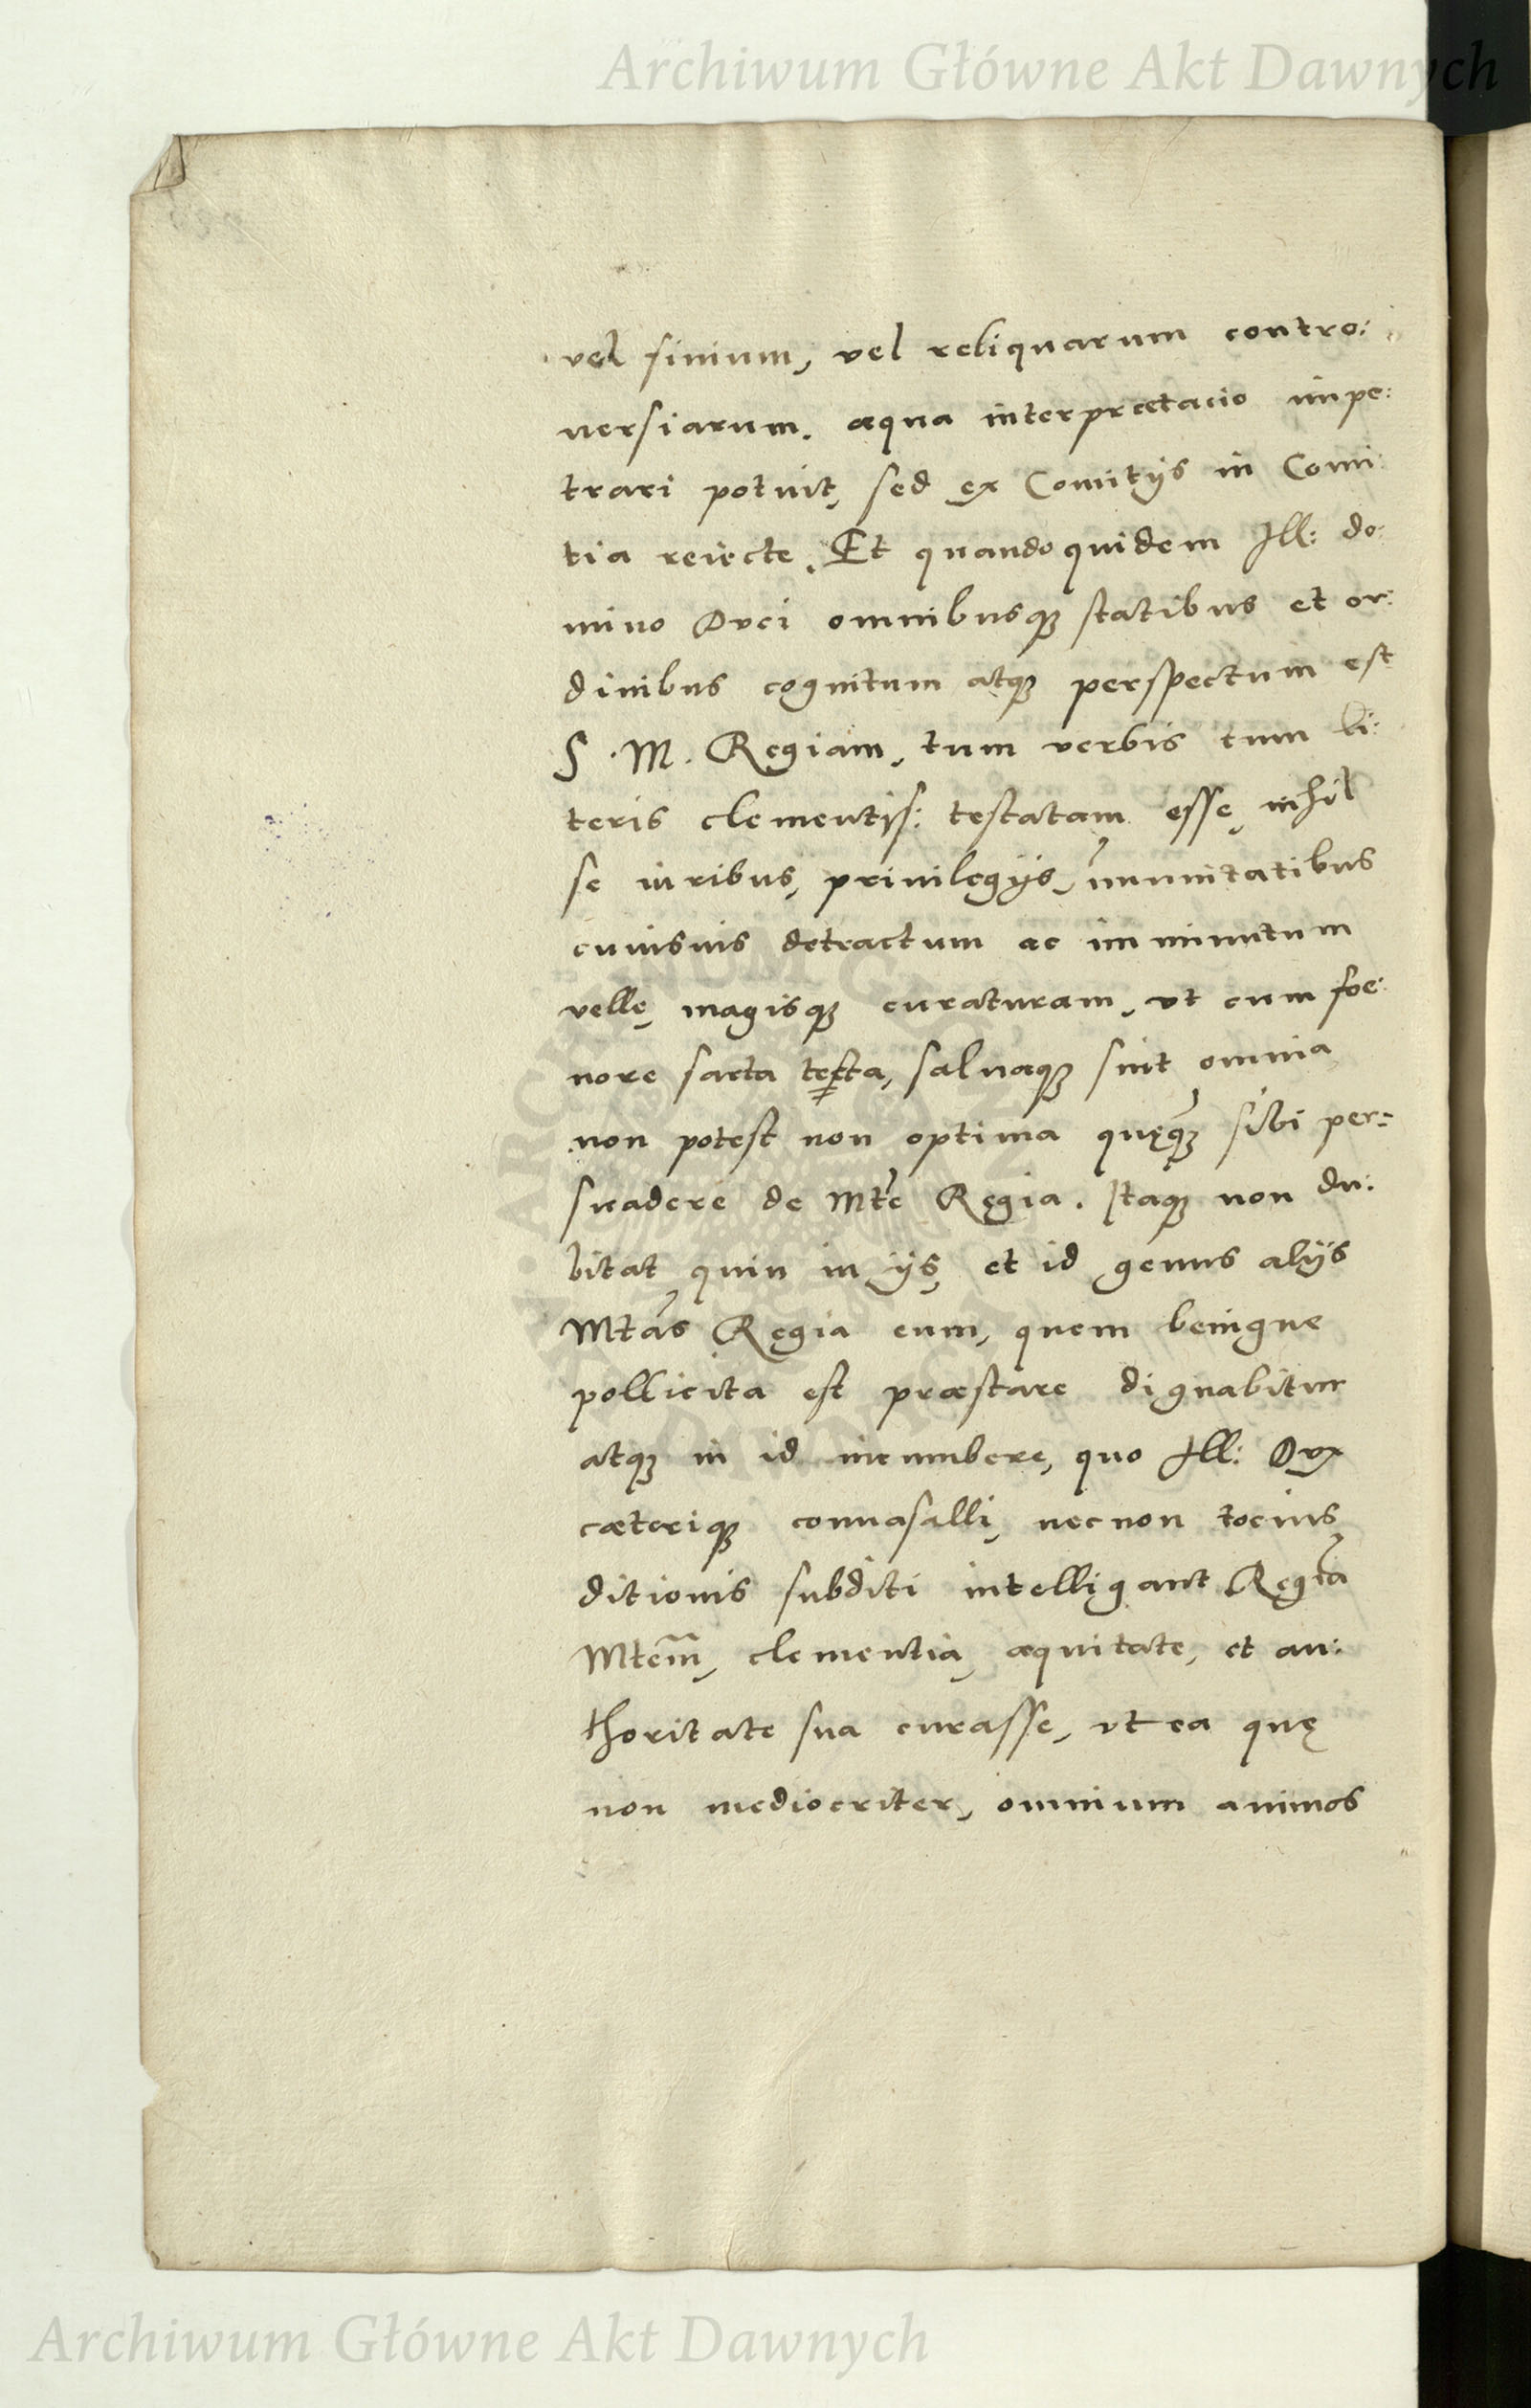 Archiwum Główne Akt Dawnych
vel finium, vel reliquarum contro:
versiarum. æqua interprætacio impe:
trari potuit, sed ex Comitijs in Comi:
tia reiectę. Et quandoquidem Ill: do:
mino Duci omnibusque statibus et or:
dinibus cognitum atque perspectum est
S. M. Regiam, tum verbis tum li:
teris clementiss: testatam esse, nihil
se iuribus, priuilegijs, immunitatibus
cuiusuis detractum ac imminutum
velle, magisque curaturam, vt cum foe:
nore sarta tecta, saluaque sint omnia
non potest non optima quęque sibi per:
suadere de Mte Regia. Itaque non du:
bitat quin in ijs, et id genus alijs
Mtas Regia eum, quem benigne
pollicita est præstare dignabitur
atque in id incumbere, quo Ill: Dux
cæterique conuasalli, necnon tocius
ditionis subditi intelligant Regiā
Mtem̄, clementia, æquitate, et au:
thoritate sua curasse, vt ea quę
non mediocriter, omnium animos
Archiwum Główne Akt Dawnych